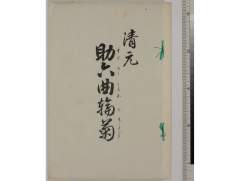 清元
助六曲輪菊